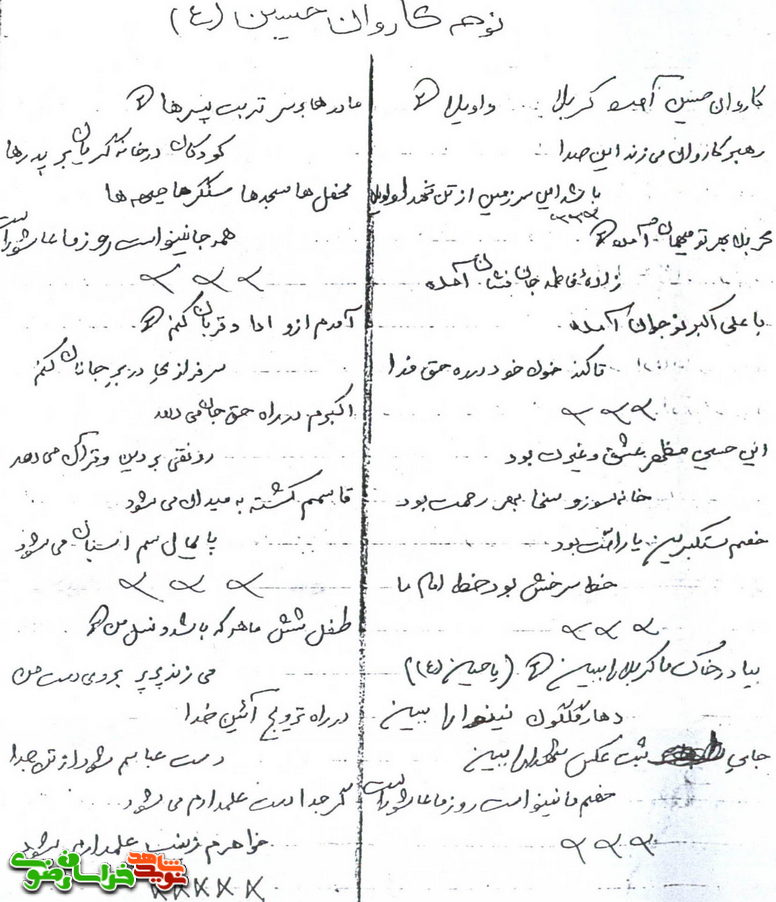 نوحه کاروان حسین (ع)
کاروان حسین آمد کربلا واویلا ۲
رهبر کاروان می زند این صدا
باشد این سرزمین از تن
کربلا بهر تو میهمان آمده ۲
زادهٔ فاطمه جان فشان آمده
با علی اکبر نوجوان آمده
تا کند خون خود در ره حق فدا
این حسین مظهر عشق و غیرت بود
خانه سوز و سخا بحر رحمت بود
خصم مستکبرین یار امت بود
خط سرخش بود خط امام ما
بیا در خاک ما کربلا را ببین ۲ (یا حسین (ع))
گلگون نینوا را ببین
جای ثبت عکس شهدا را ببین
خصم ما نینوا است روز ما عاشورا است
مادرها بر سر تربت پسرها ۲
کودکان در خانه گریان بر پدرها
محفل ها مسجدها سنگرها
همه جا نینوا است روز ما عاشورا است
آمدم از و ادا و قربان کنم ۲
سرفرازی در بر جانان کنم
اکبرم در راه حق جان می دهد
رونقی بر دین و قرآن می دهد
قاسمم کشته به میدان می شود
پایمال سم اسبان می شود
طفل شش ماهه که باشد و نسل من ۲
می زند پرپر بروی دست من
در راه ترویج آئین خدا
دست عباسم شود از تن جدا
گر جدا دست علمدارم می شود
خواهرم زینب علمدارم می شود
نوید شاهد خراسان رضوی